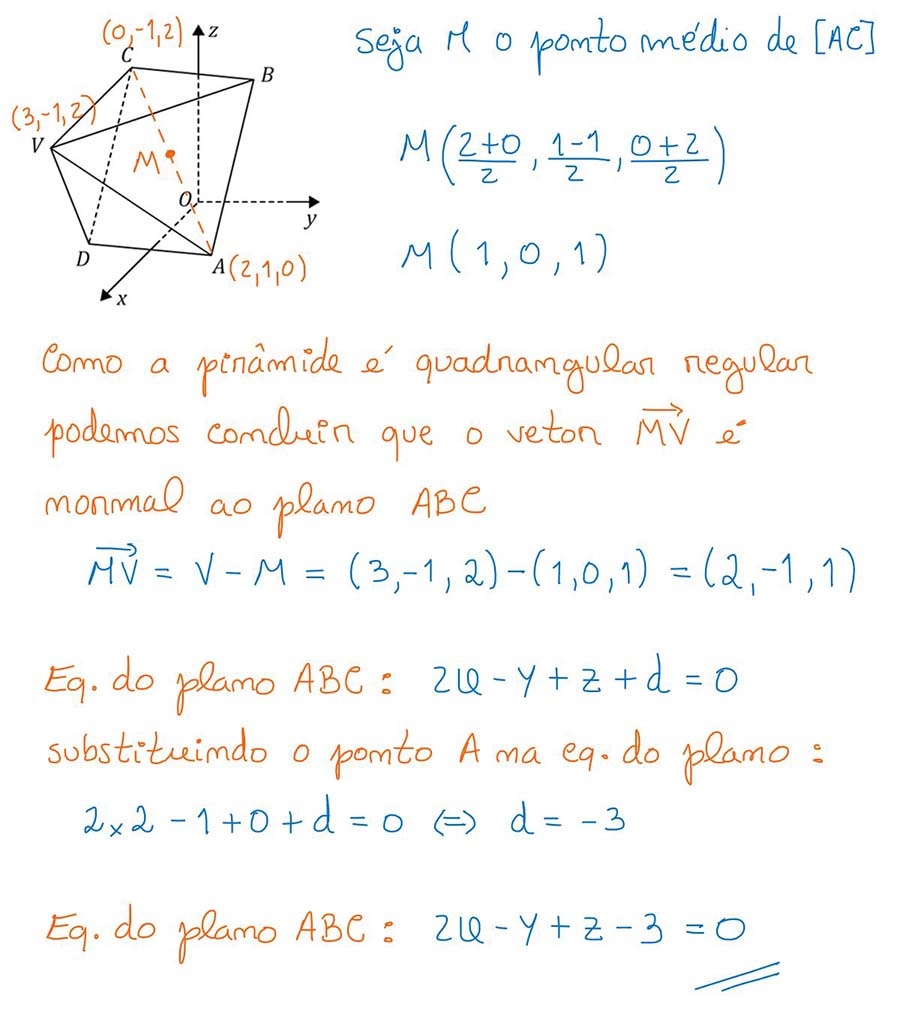 (0,-1,2)
z
C
B
(3,-1,2)
V
M
O
y
D
A(2,1,0)
x
Seja M o ponto médio de [AC]
M(2+0/2, 1-1/2, 0+2/2)
M(1,0,1)
Como a pirâmide é quadrangular regular
podemos concluir que o vetor MV⃗ é
normal ao plano ABC
MV⃗ = V-M = (3,-1,2)-(1,0,1) = (2,-1,1)
Eq. do plano ABC: 2x-y+z+d=0
substituindo o ponto A na eq. do plano:
2×2-1+0+d=0 ⇔ d=-3
Eq. do plano ABC: 2x-y+z-3=0